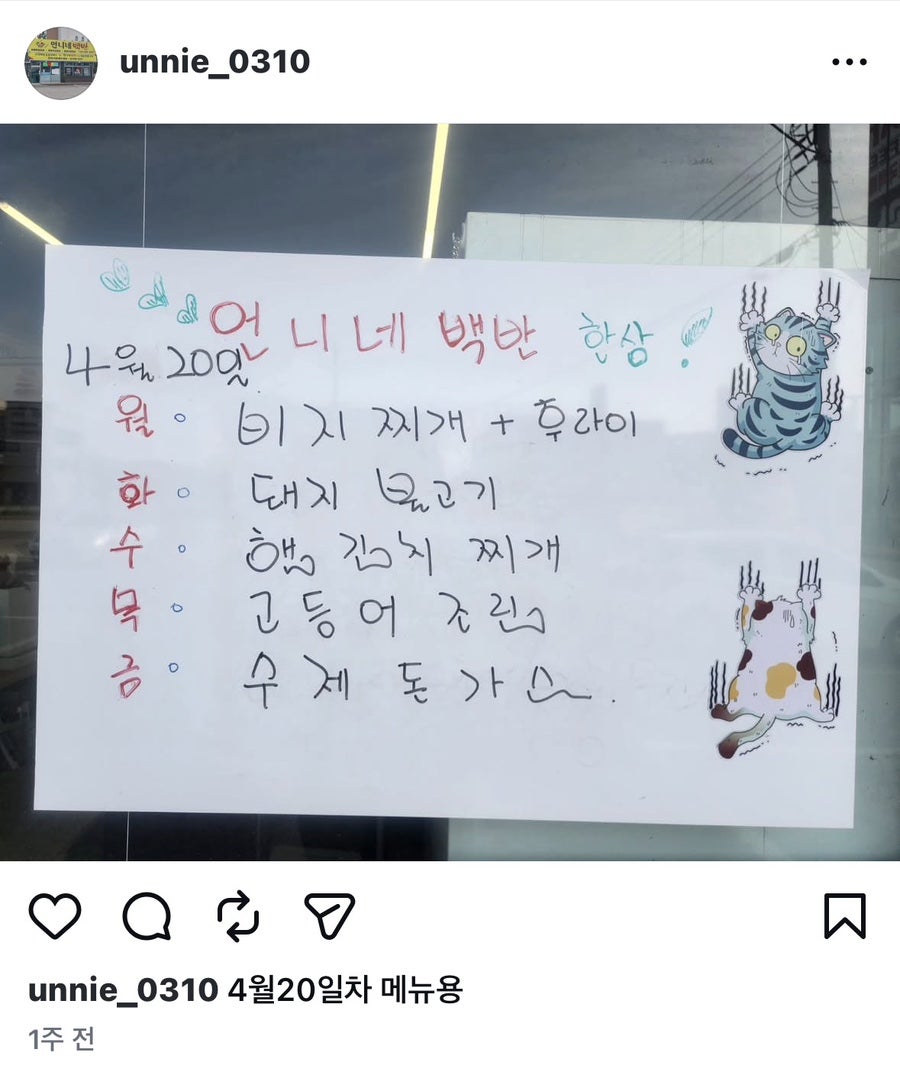 unnie_0310
언니네 백반 한상!
4월 20일
월。 비지찌개 + 후라이
화。 돼지 불고기
수。 햄 김치 찌개
목。 고등어 조림
금。 수제 돈가스.
unnie_0310 4월20일차 메뉴용
1주 전